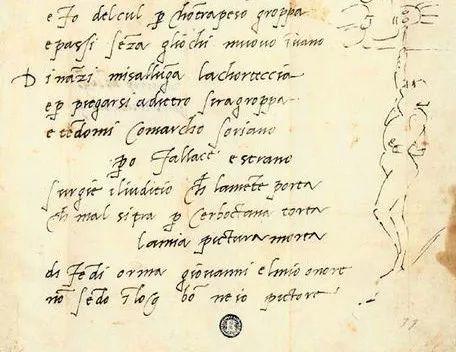 e fo del cul p chōtrapeso groppa
e passi sēza gliochi muovo īvano
Dināzi misallūga lachorteccia
e p piegarsi adietro siragroppa
e tēdomi comarcho soriano
po fallace e strano
surgie iliuditio ch lamēte porta
ch mal sitra p cerboctana torta
lamia pictura morta
difēdi orma giovanni elmio onore
nō sēdo ī loco bō ne io pictore